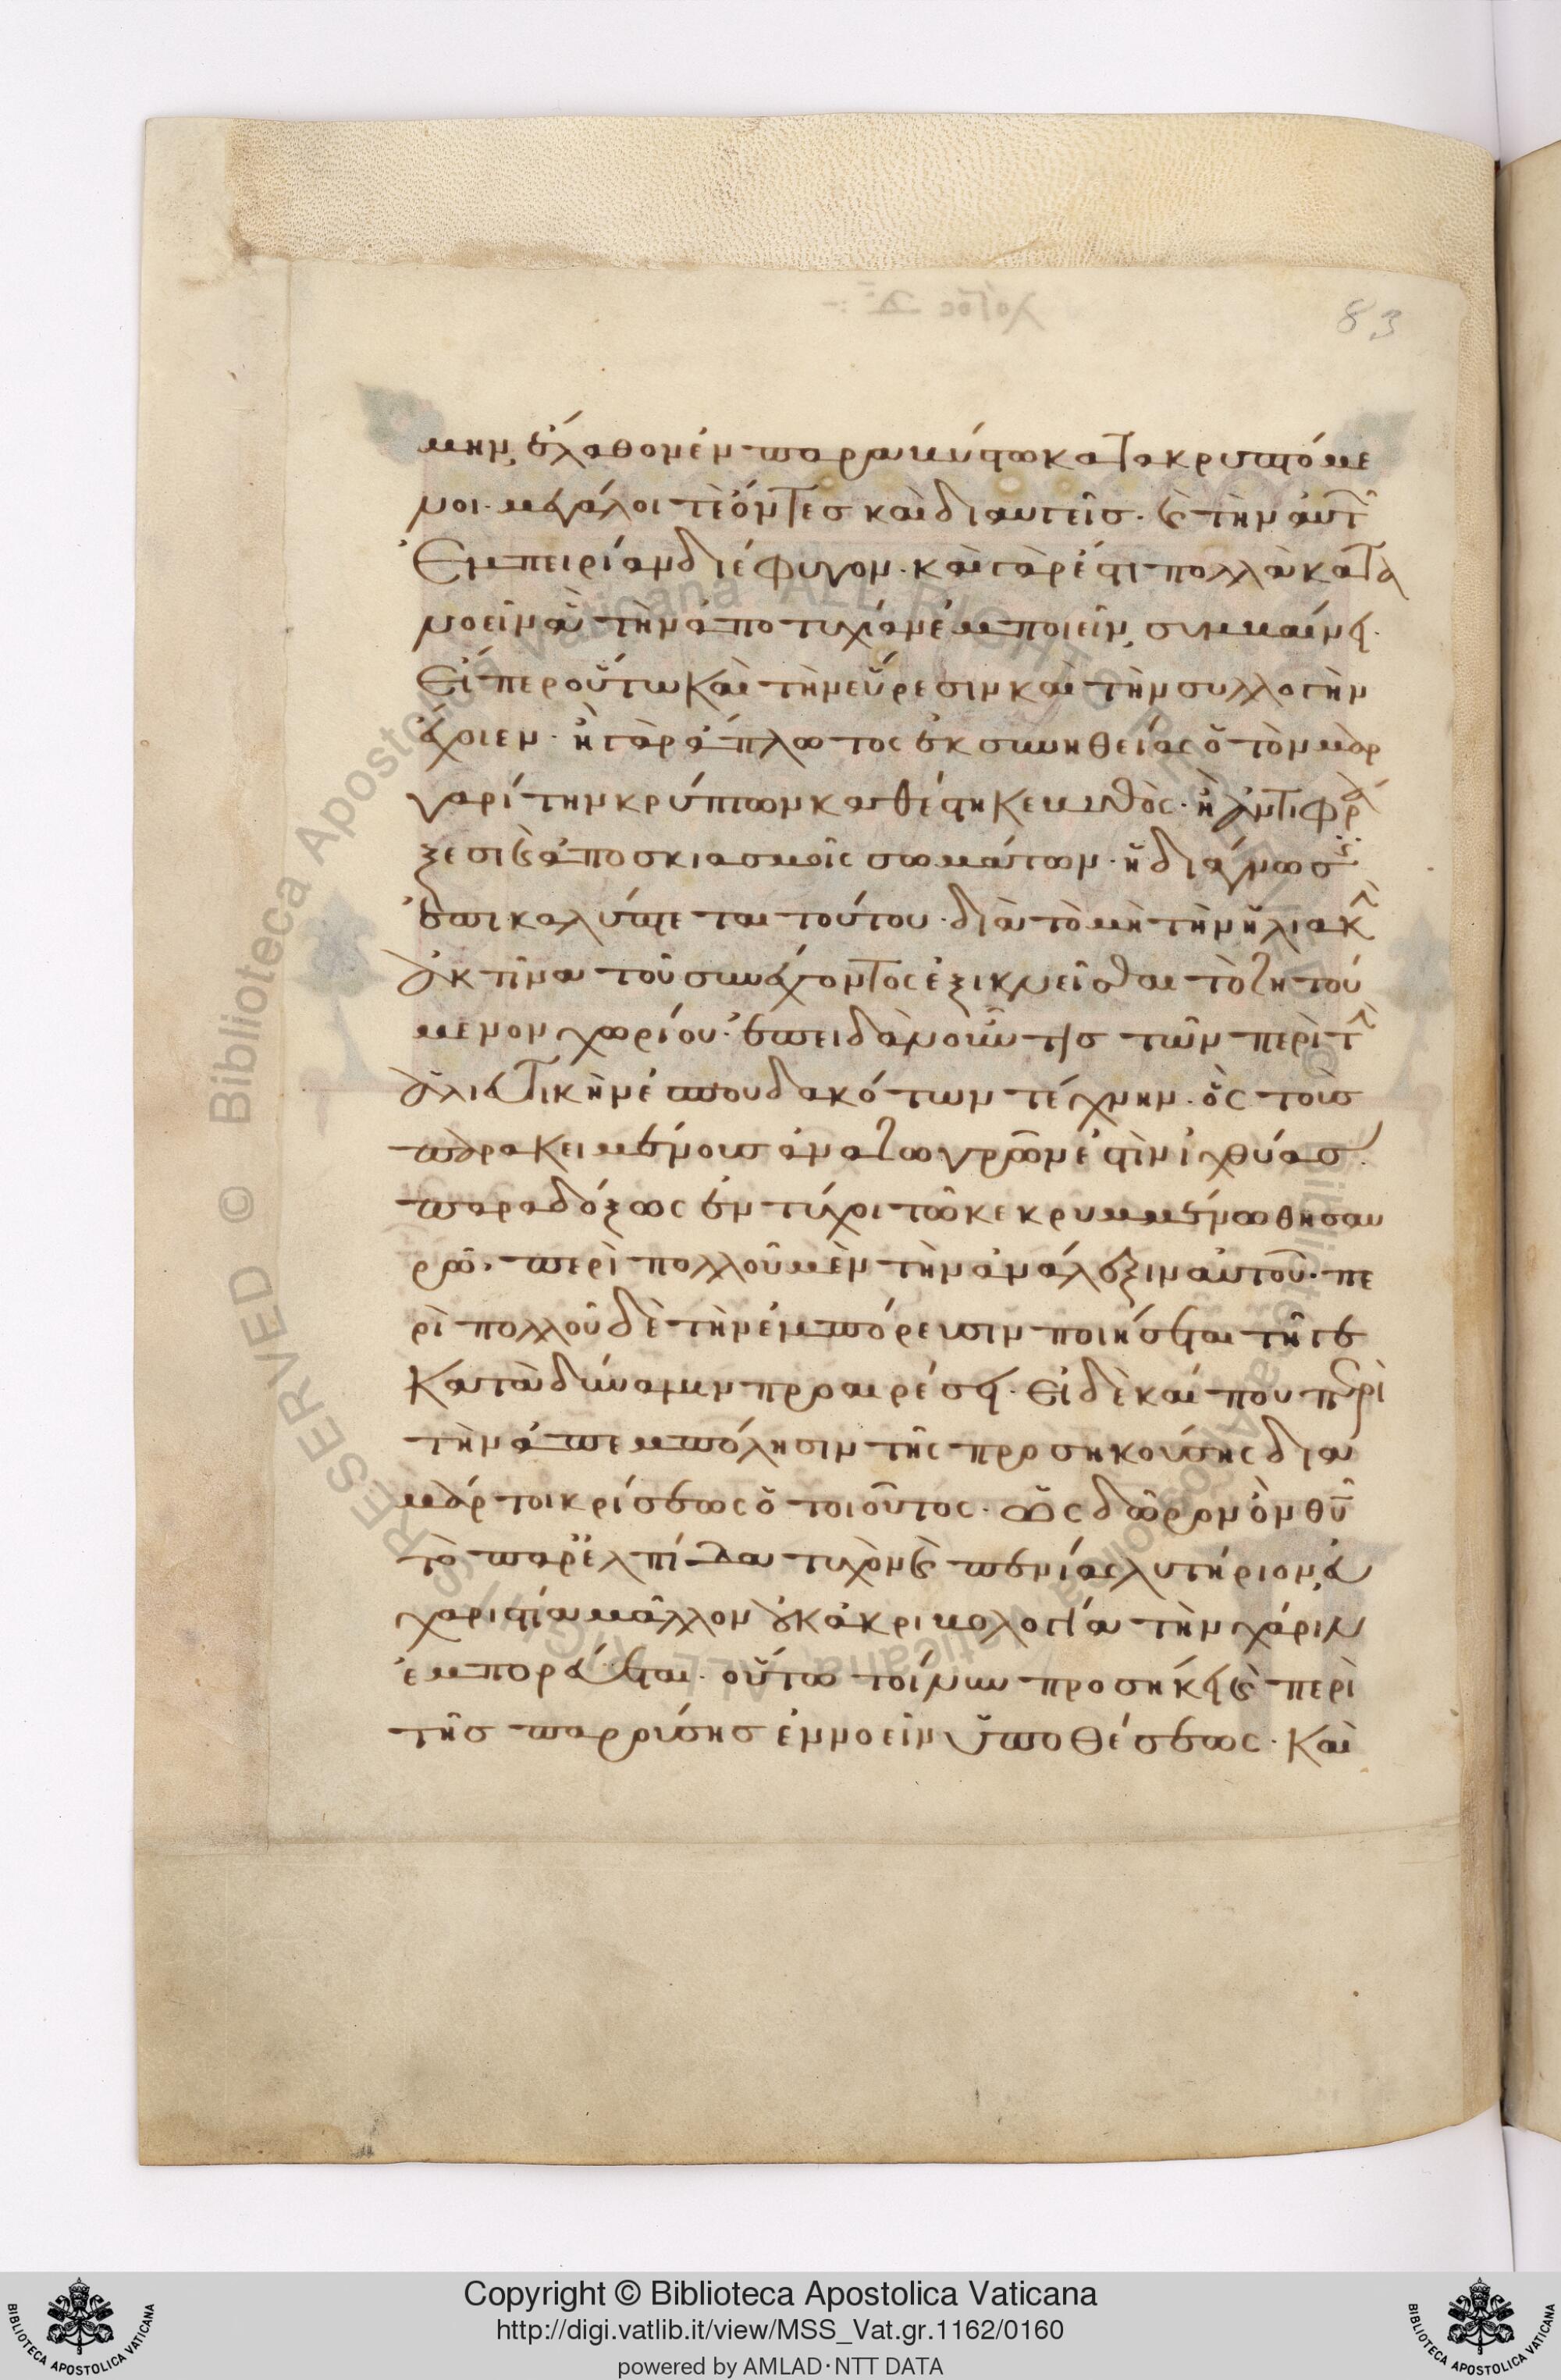 83
μην, ἔλαθον ἐν παραβύστω κατακρυπτόμε
νοι. μεγάλοι τὲ ὄντες καὶ διαυγεῖς. καὶ τὴν αὐτῶν
Ἐμπειρίαν διέφυγον. καὶ γὰρ ἔστι πολλὰ κατα
νοεῖν ἃ τὴν ἀποτυχίαν ἐμποιεῖν, συμβαίνει.
Εἴπερ οὕτω καὶ τὴν εὕρεσιν καὶ τὴν συλλογὴν
ἔχοιεν. ἢ γὰρ ἄπλωτος ἐκ συνηθείας ὁ τὸν μαρ
γαρίτην κρύπτων καθέστηκε βυθὸς. ἢ ἀντιφρά
ξεσι καὶ ἀποσκιασμοῖς σωμάτων. ἡ διάγνωσις
ἐπικαλύπτεται τούτου. διὰ τὸ μὴ τὴν ἡλιακὴν
ἀκτῖνα τοῦ συνέχοντος ἐξικνεῖσθαι τὸ ζητού
μενον χωρίου. ἐπειδὰν οὖν τίς τῶν περὶ τὴν
ἁλιευτικὴν ἐσπουδακότων τέχνην. ὃς τοῖς
παρακειμένοις ἀναζωγρῶν ἐστὶν ἰχθύας.
παραδόξως ἐντύχοι τῶ κεκρυμμένω θησαυ
ρῶ. περὶ πολλοῦ μὲν τὴν ἀνάλεξιν αὐτοῦ. πε
ρὶ πολλοῦ δὲ τὴν ἐμπόρευσιν ποιήσεται τῆγε
Κατὰ δύναμιν προαιρέσει. Εἰ δὲ καί που περὶ
τὴν ἀπεμπόλησιν τῆς προσηκούσης δια
μάρτοι κρίσεως ὁ τοιοῦτος. ὡς δῶρον ὂν θεοῦ
τὸ παρελπίδα τυχὸν καὶ πενίας λυτήριον, εὐ
χαριστία μᾶλλον οὐκ ἀκριβολογία τὴν χάριν
ἐμπορεύεται. οὕτω τοίνυν προσήκει καὶ περὶ
τῆς παρούσης ἐννοεῖν ὑποθέσεως. Καὶ
© Biblioteca Apostolica Vaticana ALL RIGHTS RESERVED
Copyright © Biblioteca Apostolica Vaticana
http://digi.vatlib.it/view/MSS_Vat.gr.1162/0160
powered by AMLAD·NTT DATA
BIBLIOTECA APOSTOLICA VATICANA
BIBLIOTECA APOSTOLICA VATICANA